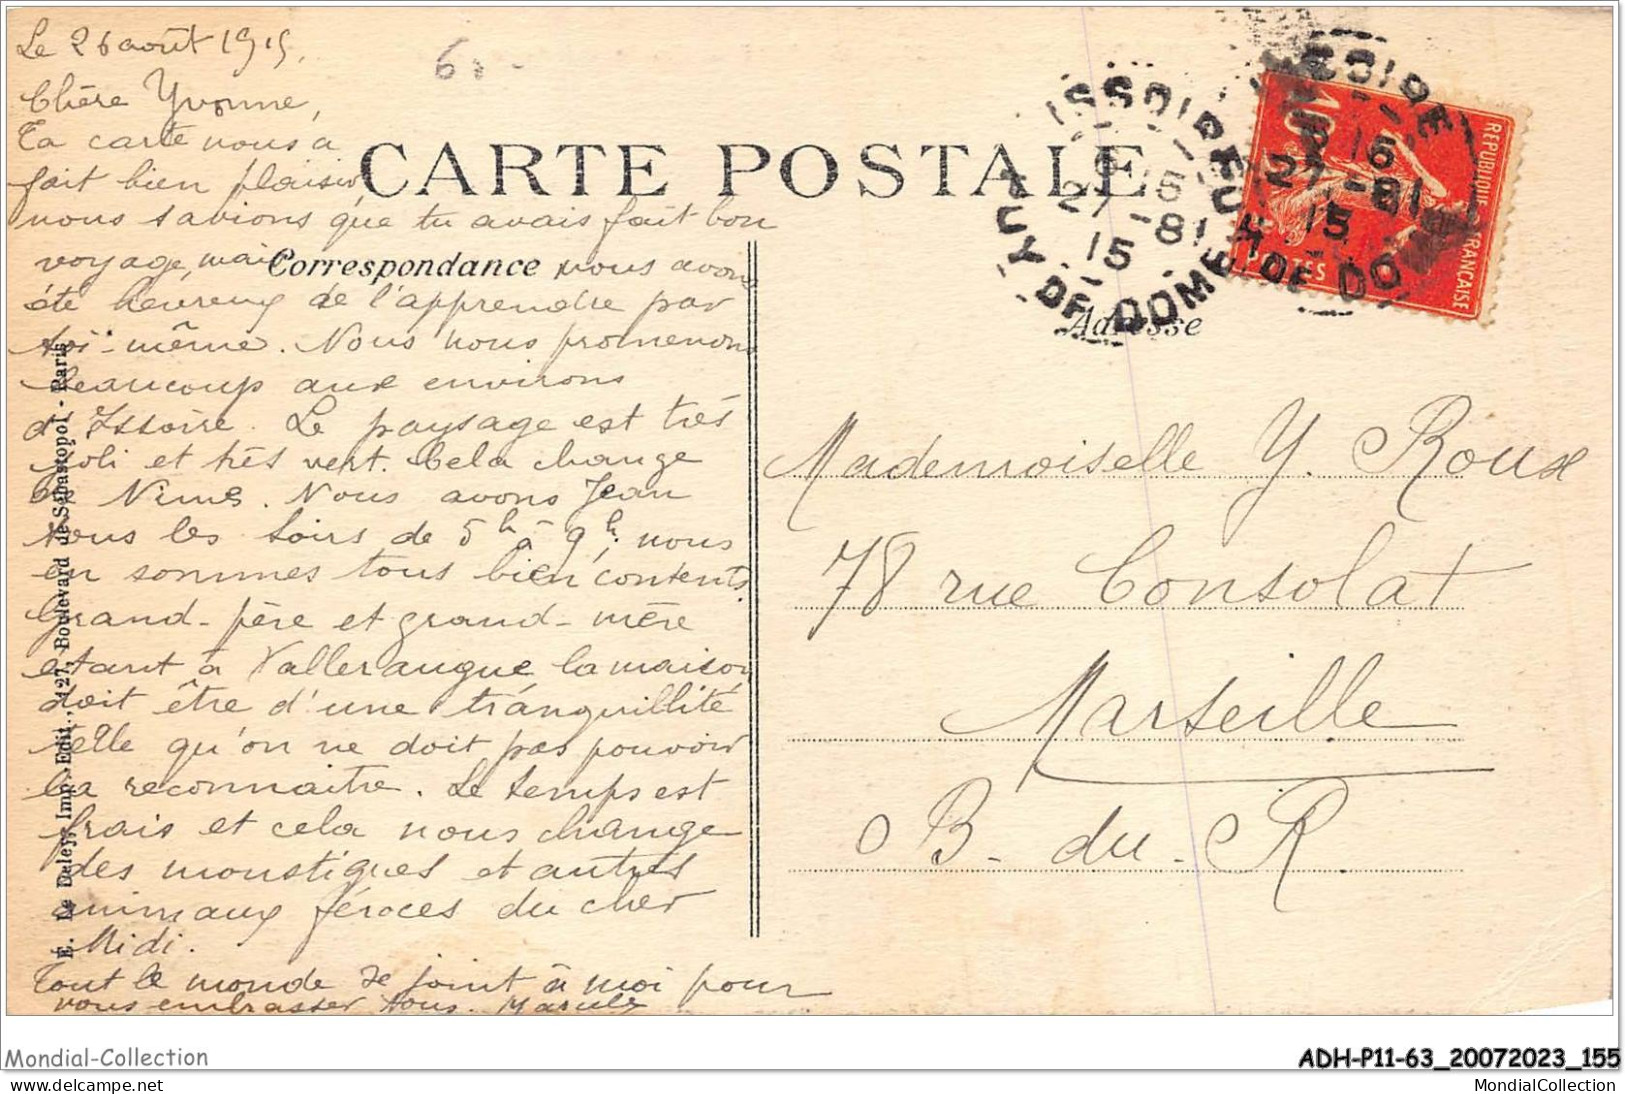 Le 26 août 1915,
Chère Yvonne,
Ta carte nous a
fait bien plaisir,
nous savions que tu avais fait bon
voyage, mais nous avons
été heureux de l'apprendre par
toi-même. Nous nous promenons
beaucoup aux environs
d'Issoire. Le paysage est très
joli et très vert. Cela change
de Nimes. Nous avons Jean
tous les soirs de 5h à 9h, nous
en sommes tous bien contents.
Grand-père et grand-mère
étant à Valleraugue la maison
doit être d'une tránquillité
telle qu'on ne doit pas pouvoir
la reconnaitre. Le temps est
frais et cela nous change
des moustiques et autres
animaux féroces du cher
Midi.
Tout le monde se joint à moi pour
vous embrasser tous.
CARTE POSTALE
Correspondance
Adresse
E. Le Deley, Imp.-Edit., 127, Boulevard de Sébastopol - Paris
ISSOIRE
PUY DE DOME
27-8
15
ISSOIRE
PUY-DE-DOME
27-8
15
RÉPUBLIQUE FRANÇAISE
POSTES
10
Mademoiselle Y. Roux
78 rue Consolat
Marseille
B. du. R
Mondial-Collection
ADH-P11-63_20072023_155
MondialCollection